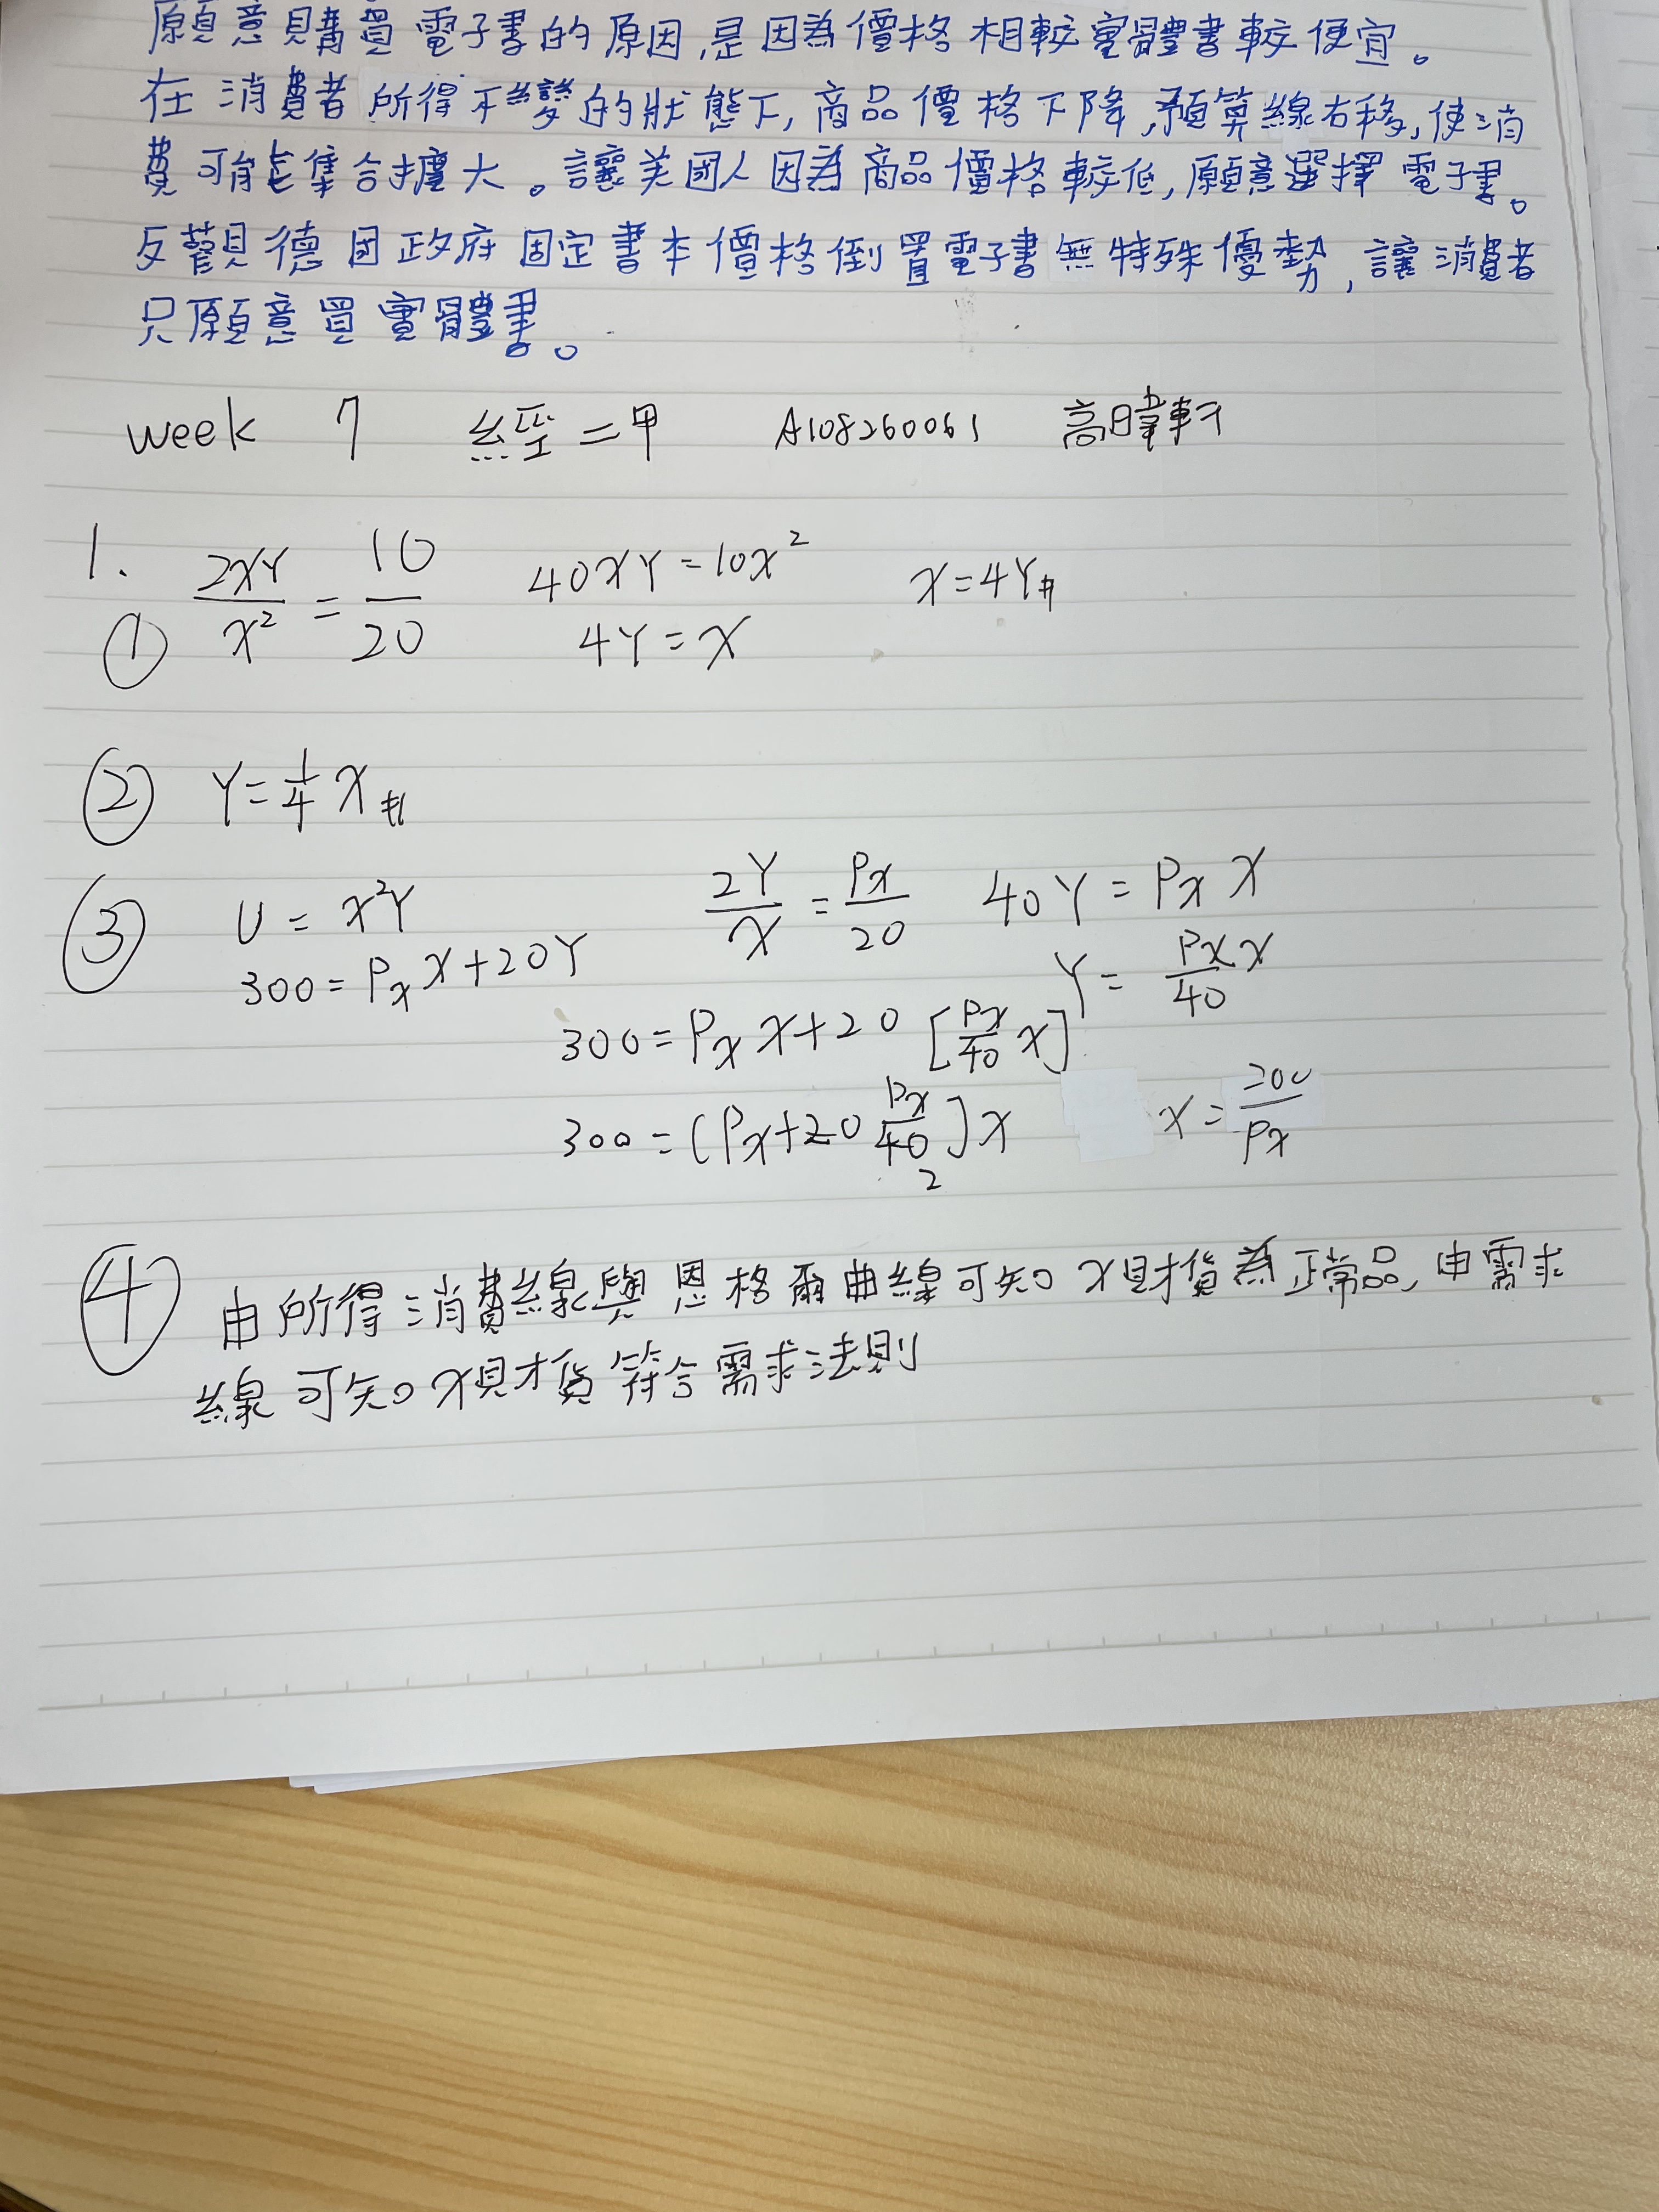 願意購買電子書的原因,是因為價格相較實體書較便宜。
在消費者所得不變的狀態下,商品價格下降,預算線右移,使消
費可能集合擴大。讓美國人因為商品價格較低,願意選擇電子書。
反觀德國政府固定書本價格倒置電子書無特殊優勢,讓消費者
只願意買實體書。
week 7 經二甲 A108260061 高暐軒
1.
① 2XY/X² = 10/20 40XY=10X² X=4Y#
4Y=X
② Y=1/4 X #
③ U = X²Y 2Y/X = Px/20 40Y = Px X
300=Px X+20Y Y= Px/40 X
300=Px X+20 [Px/40 X]
300=(Px+20 Px/40]X X= 200/Px
2
④ 由所得消費線與恩格爾曲線可知X財貨為正常品,由需求
線可知X財貨符合需求法則